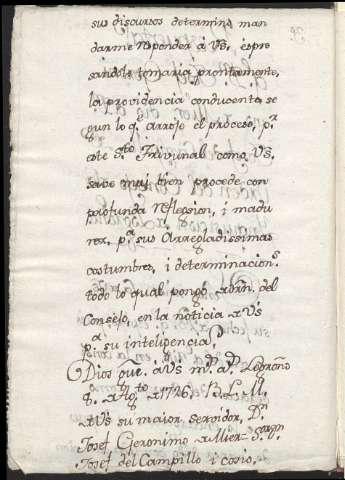 sus discursos determina man
darme responder a VS. expre
sandole tomaria prontamente,
la providencia conducente se
gun lo q. arroje el proceso, p.r
este S.to Trivunal como VS.
save muy bien procede con
profunda reflegsion, i madu
rez, p.a sus Arregladissimas
costumbres, i determinacion.s
todo lo qual pongo de orn. del
Consejo, en la noticia de VS
p.a su inteligencia,
Dios gue. a VS m.s a.s Logroño
g.to de 1726, B. L. M.
de VS su maior servidor, D.n
Josef Geronimo de Mier = S.or
Josef del Campillo i cosio,